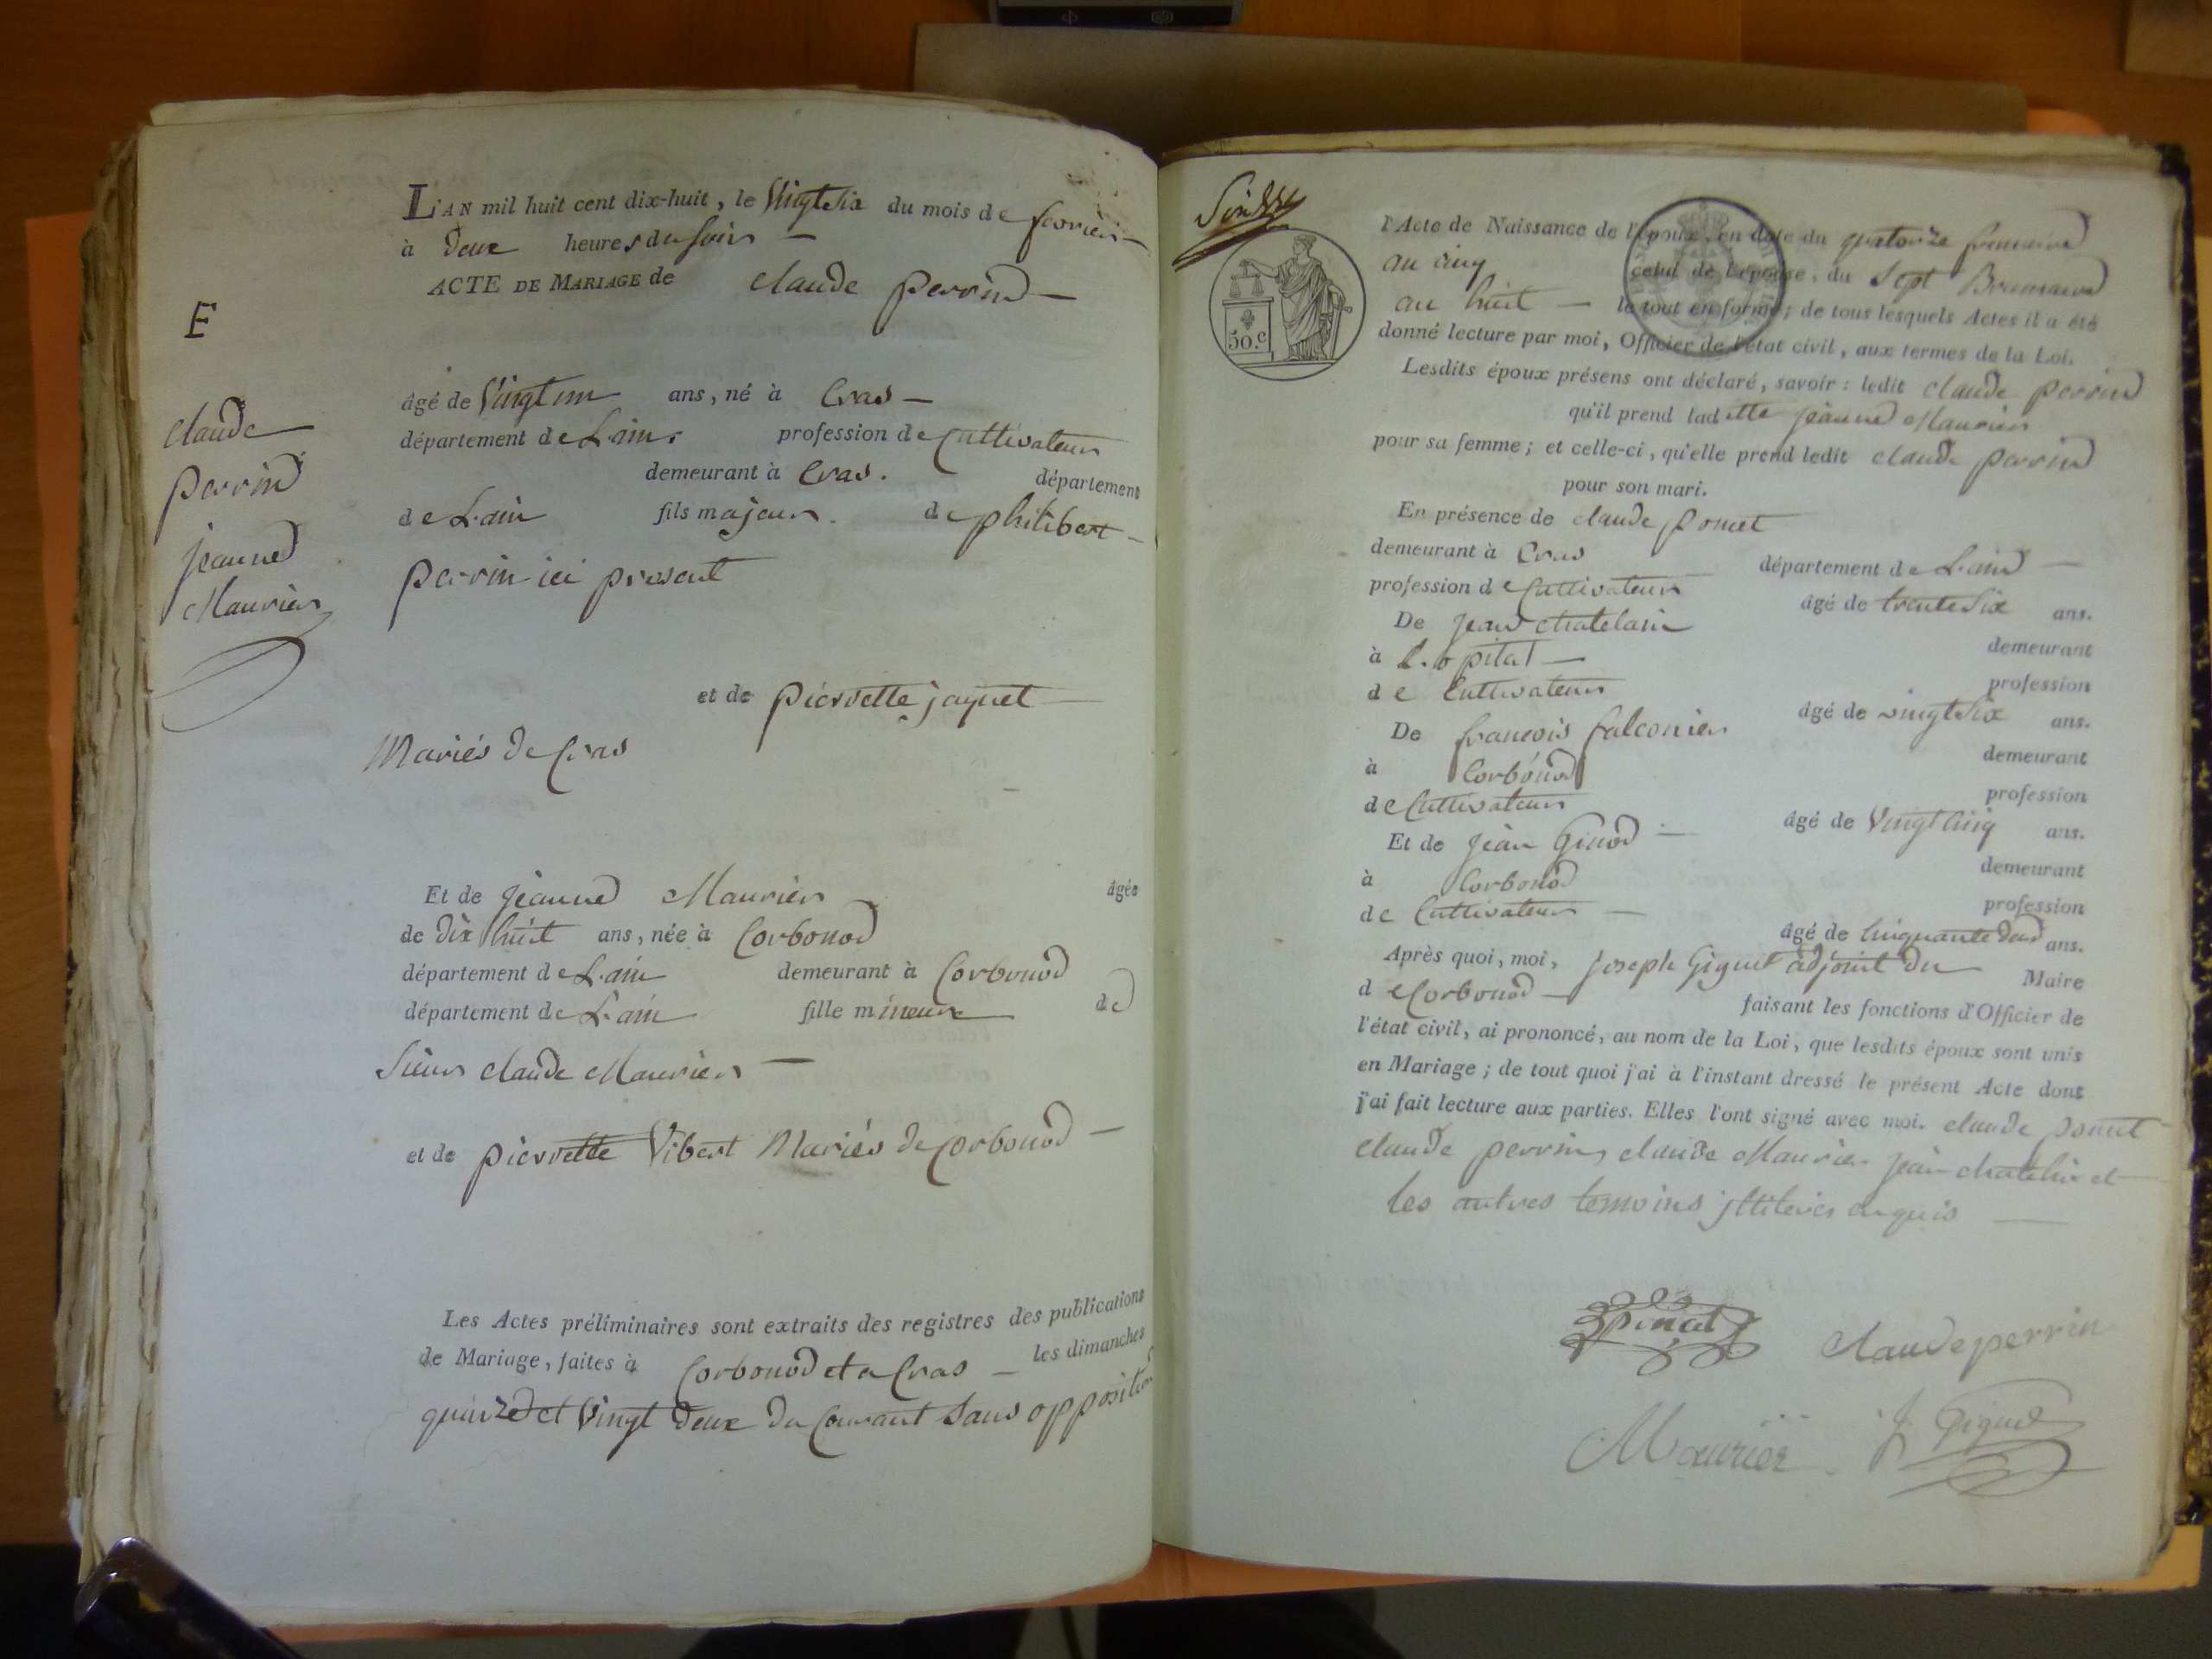 L'AN mil huit cent dix-huit, le Vingt Six du mois de fevrier
à Deux heures du soir
ACTE DE MARIAGE de claude perrin
E
claude
perrin
jeanne
Maurier
âgé de Vingt un ans, né à Cras
département de L'ain profession de Cultivateur
demeurant à Cras. département
de L'ain fils majeur de philibert
perrin ici present
et de pierrette jaquet
Mariés de Cras
Et de jeanne Maurier âgée
de dix huit ans, née à Corbonod
département de L'ain demeurant à Corbonod
département de L'ain fille mineure de
Sieur claude Maurier
et de pierrette Vibert Mariés de Corbonod
Les Actes préliminaires sont extraits des registres des publications
de Mariage, faites à Corbonod et a Cras les dimanches
quinze et Vingt Deux du Courant Sans opposition
50.c
l'Acte de Naissance de l'époux, en date du quatorze frimaire
an cinq celui de l'épouse, du Sept Brumaire
an huit le tout en forme; de tous lesquels Actes il a été
donné lecture par moi, Officier de l'état civil, aux termes de la Loi.
Lesdits époux présens ont déclaré, savoir : ledit claude perrin
qu'il prend ladette jeanne Maurier
pour sa femme; et celle-ci, qu'elle prend ledit claude perrin
pour son mari.
En présence de claude Poncet
demeurant à Cras département de L'ain
profession de Cultivateur âgé de trente Six ans.
De jean chatelain demeurant
à L'opital profession
de Cultivateur âgé de vingt Six ans.
De francois falconier demeurant
à Corbonod profession
de Cultivateur âgé de Vingt Cinq ans.
Et de jean Ginod demeurant
à Corbonod profession
de Cultivateur âgé de Cinquante Deux ans.
Après quoi, moi, joseph Giguet adjoint du Maire
de Corbonod faisant les fonctions d'Officier de
l'état civil, ai prononcé, au nom de la Loi, que lesdits époux sont unis
en Mariage; de tout quoi j'ai à l'instant dressé le présent Acte dont
j'ai fait lecture aux parties. Elles l'ont signé avec moi. claude Poncet
claude perrin, claude Maurier jean chatelain et
les autres temoins illiteres enquis
Claude perrin
Maurier
J. Giguet